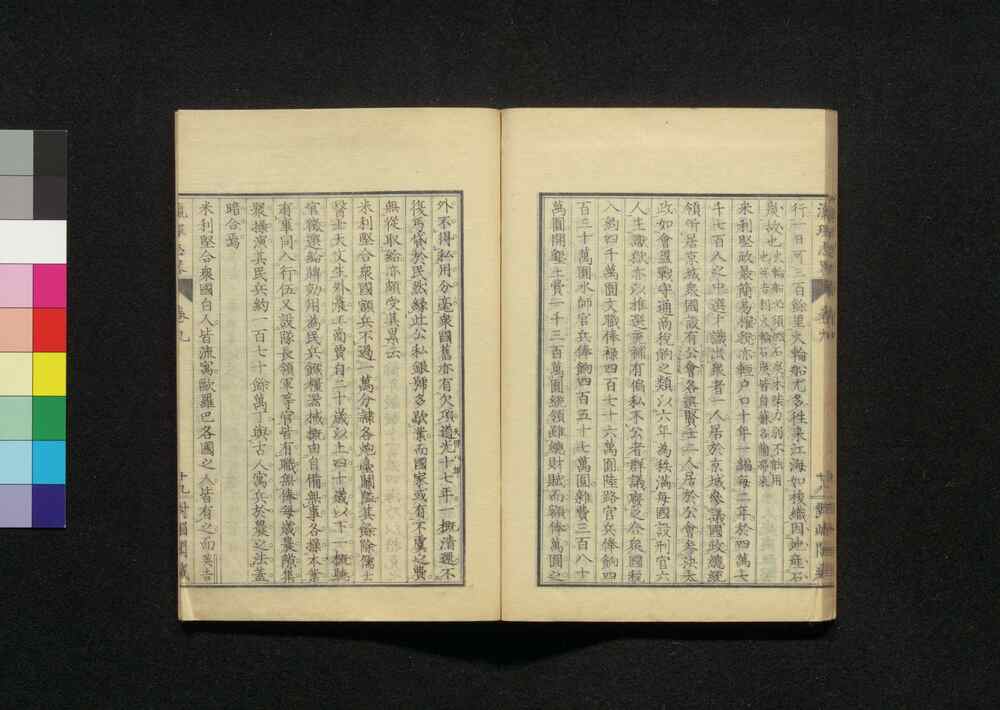 瀛環志略 卷九
行一日可三百餘里火輪船尤多往來江海如梭織因地產石
炭故也火輪船必須燃石炭木柴力弱不能用
也英吉利火輪石炭皆自蘇各蘭帶來
米利堅政最簡易榷稅亦輕戶口十年一編每二年於四萬七
千七百人之中選才識出衆者一人居於京城參議國政總統
領所居京城衆國設有公會各選賢士二人居於公會參決大
政如會盟戰守通商稅餉之類以六年為秩滿每國設刑官六
人主讞獄亦以推選充補有偏私不公者群議廢之合衆國稅
入約四千萬圓文職俸祿四百七十六萬圓陸路官兵俸餉四
百三十萬圓水師官兵俸餉四百五十七萬圓雜費三百八十
萬圓開墾土費一千三百萬圓統領雖總財賦而額俸萬圓之
外不得私用分毫衆國舊亦有欠項道光十七年一概清還不
天保八年
復丐貸於民然緣此公私銀號多歇業而國家或有不虞之費
無從取給亦頗受其累云
米利堅合衆國額兵不過一萬分隸各炮臺關隘其餘除儒士
醫士天文生外農工商賈自二十歲以上四十歲以下一概聽
官徵選給牌効用為民兵餱糧器械概由自備無事各操本業
有事同入行伍又設隊長領軍等官皆有職無俸每歲農隙集
聚操演其民兵約一百七十餘萬丁與古人寓兵於農之法蓋
暗合焉
米利堅合衆國白人皆流寓歐羅巴各國之人皆有之而英吉
卷九 十九 對嵋閣藏